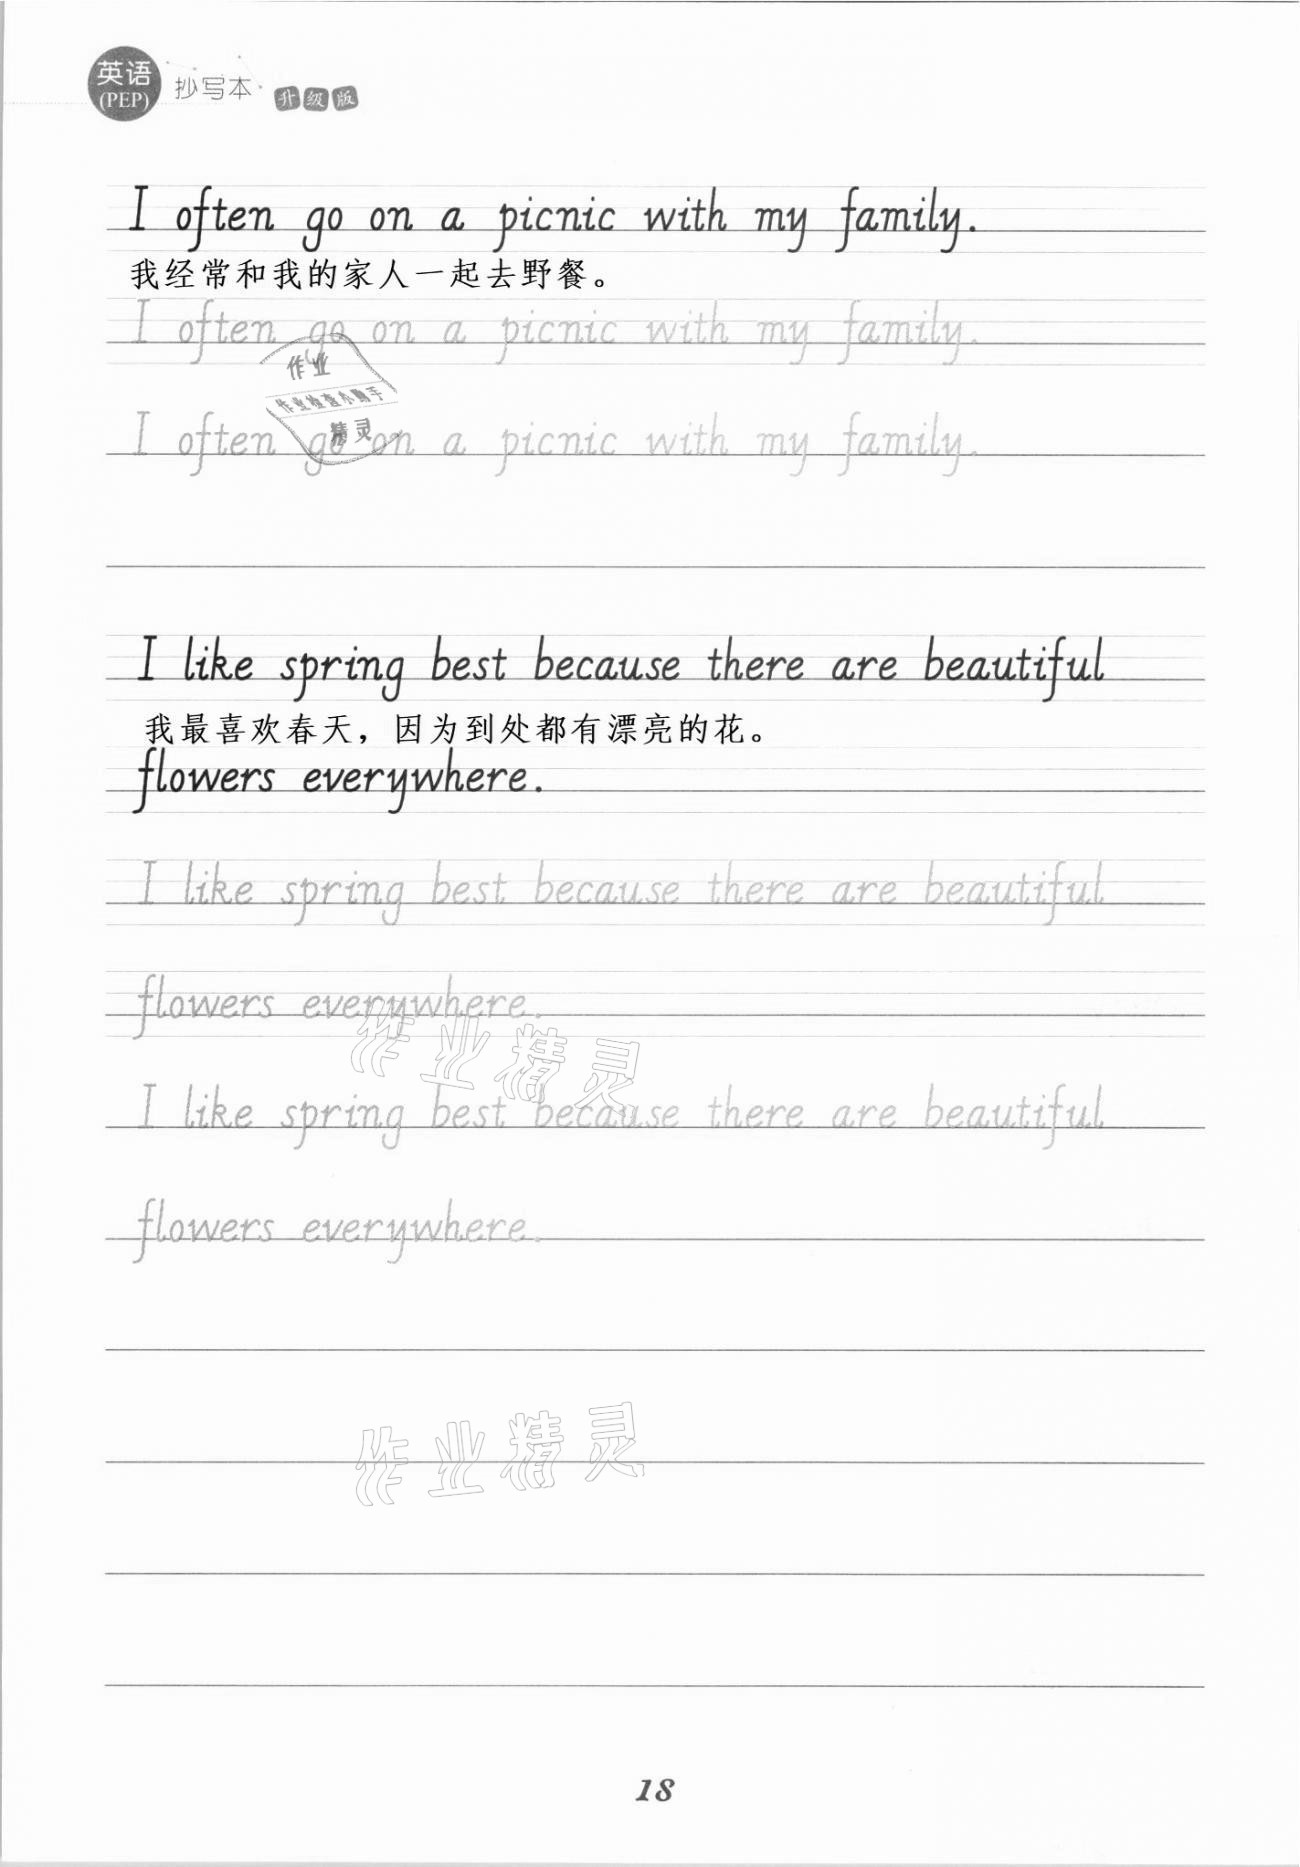 英语
(PEP)
抄写本
升级版
I often go on a picnic with my family.
我经常和我的家人一起去野餐。
I often go on a picnic with my family.
作业
作业检查小助手
精灵
I often go on a picnic with my family.
I like spring best because there are beautiful
我最喜欢春天，因为到处都有漂亮的花。
flowers everywhere.
I like spring best because there are beautiful
flowers everywhere.
作业精灵
I like spring best because there are beautiful
flowers everywhere.
作业精灵
18